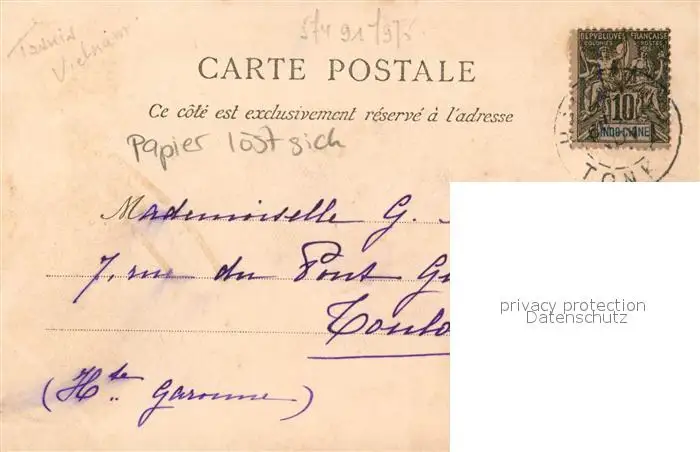 Tonkin
Vietnam
CARTE POSTALE
Ce côté est exclusivement réservé à l'adresse
Papier löst sich
RÉPUBLIQUE FRANÇAISE
COLONIES POSTES
10
INDO-CHINE
TONK
Mademoiselle G.
7, rue du Pont Gu
Toulo
(Hte Garonne)
privacy protection
Datenschutz